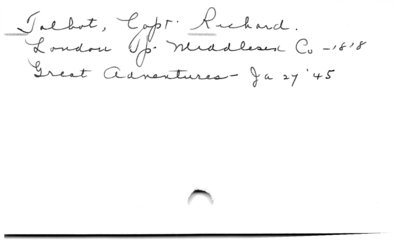 Talbot, Capt. Richard.
London Tp. Middlesex Co - 1818
Great Adventures - Ja 27 '45